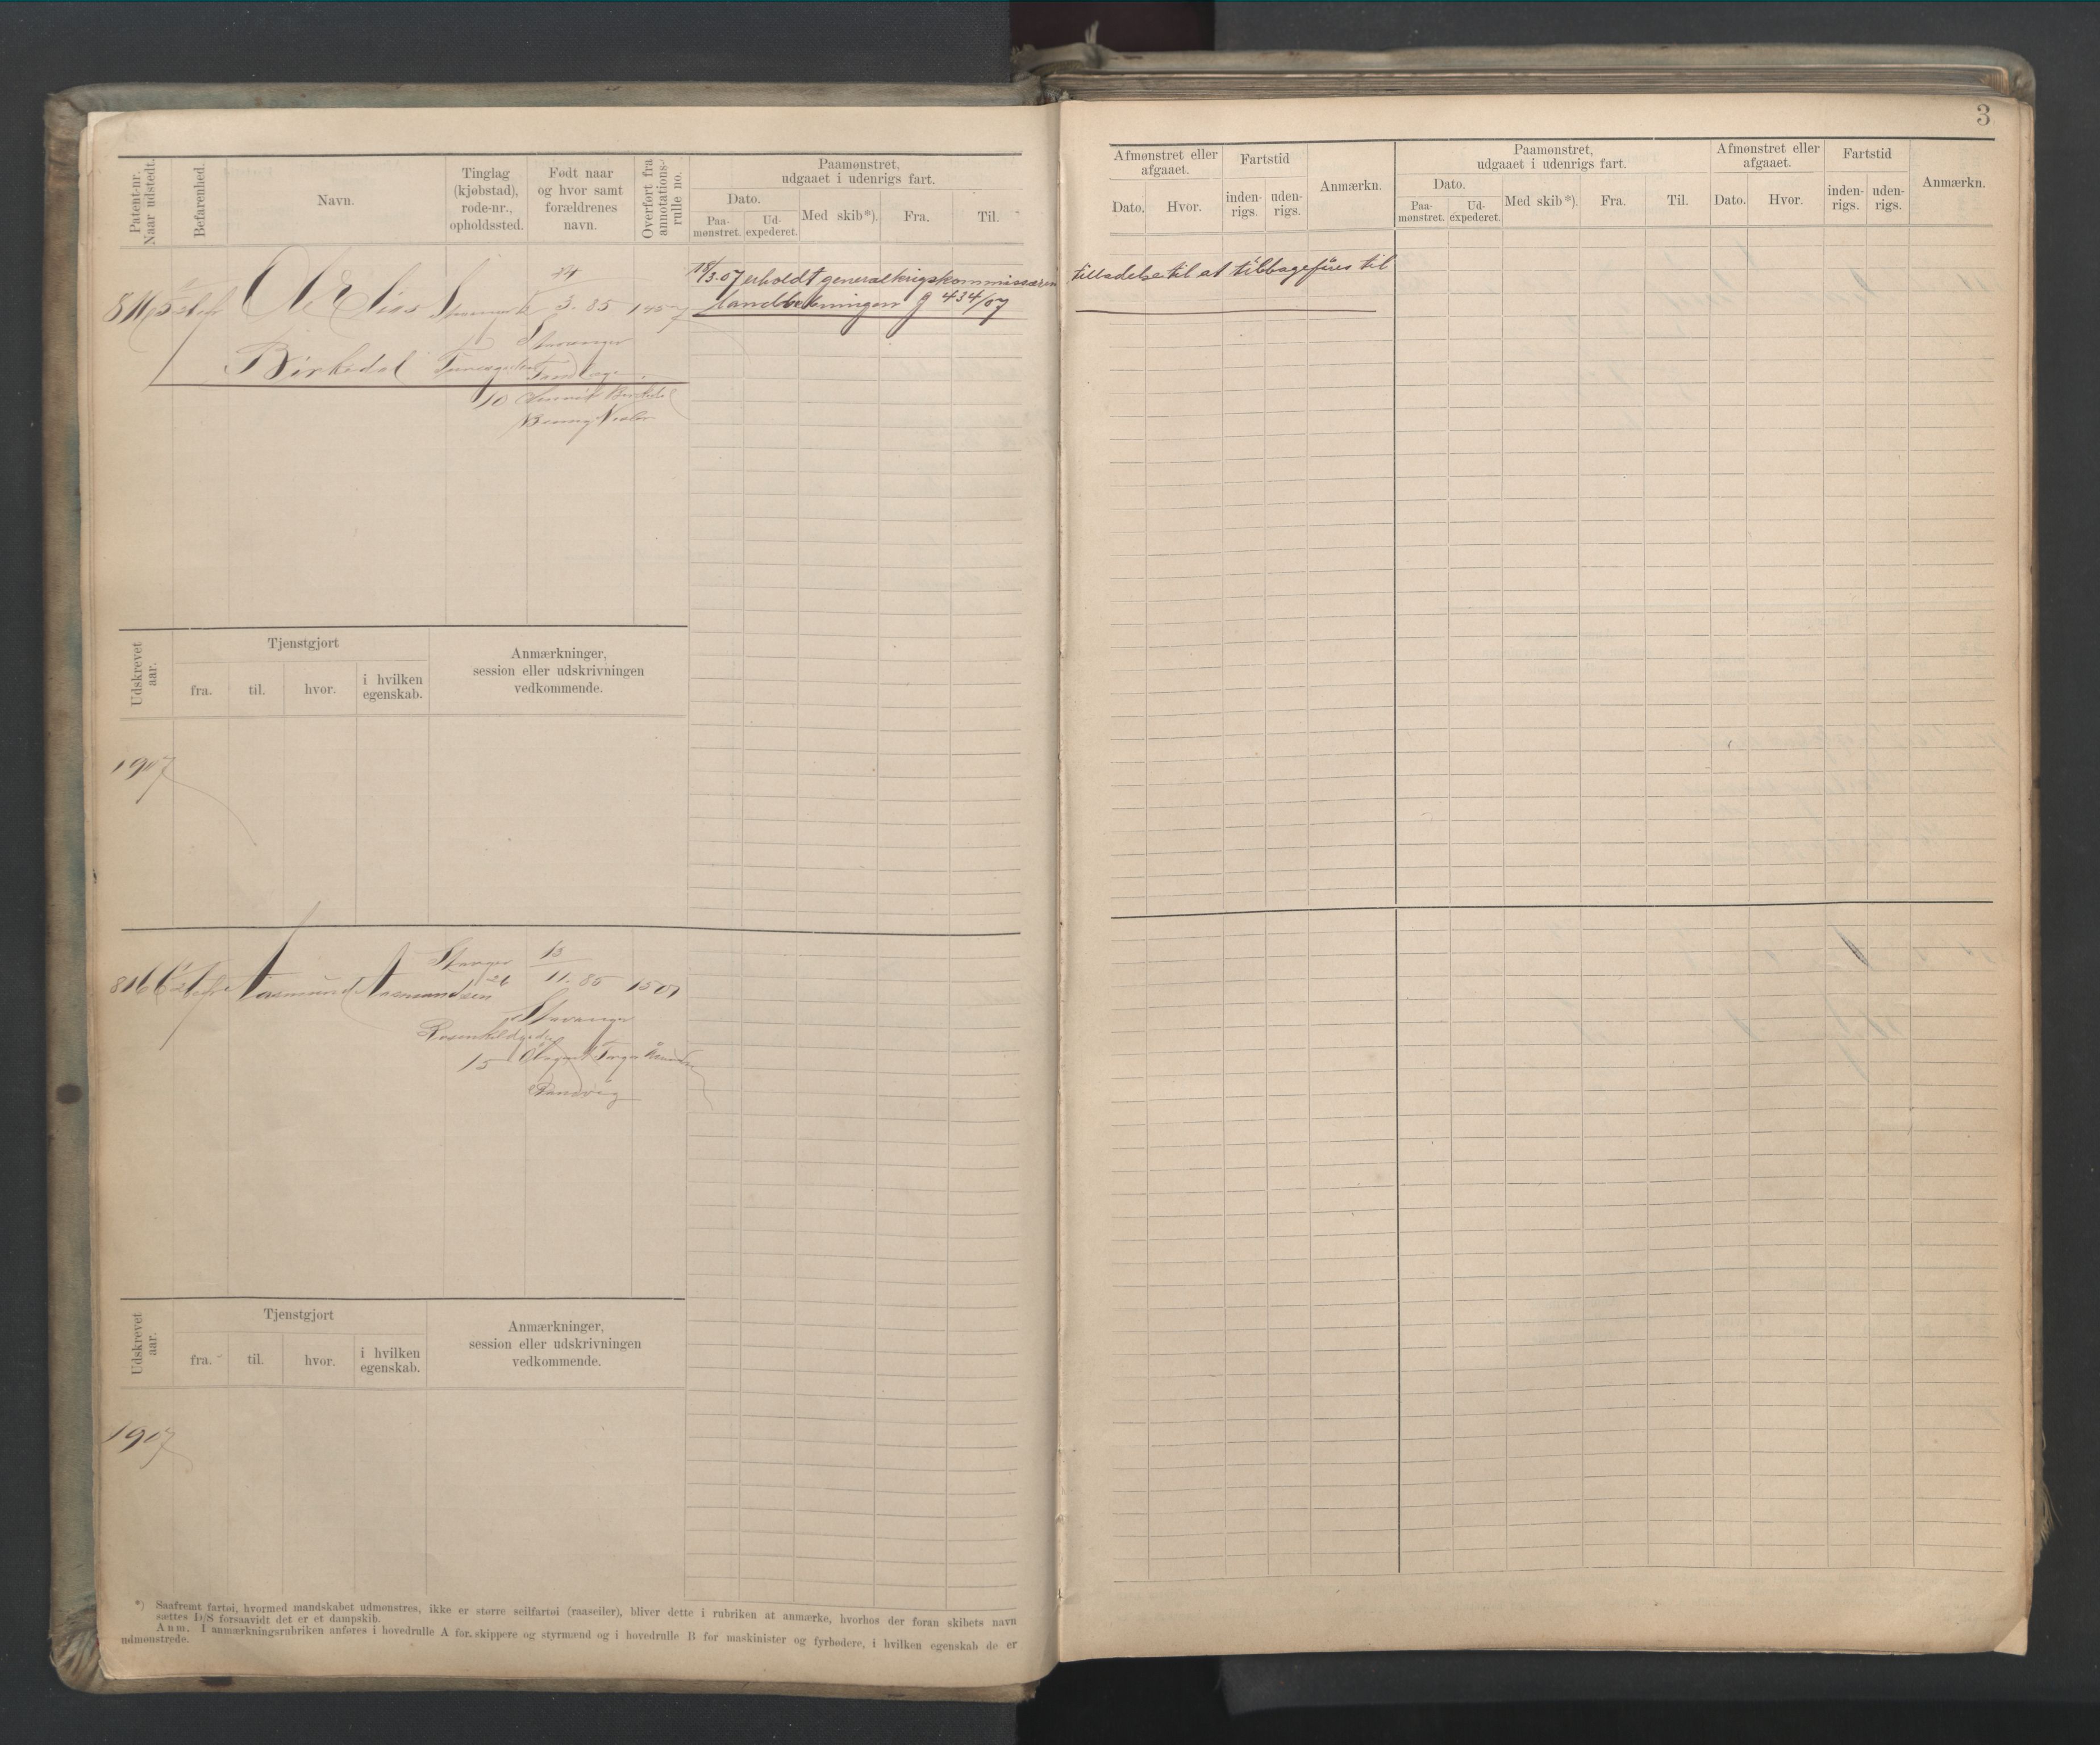 3
Patent-nr. Naar udstedt.
Befarenhed.
Navn.
Tinglag (kjøbstad), rode-nr., opholdssted.
Født naar og hvor samt forældrenes navn.
Overført fra annotations-rulle no.
Paamønstret, udgaaet i udenrigs fart.
Dato.
Paa-mønstret.
Ud-expederet.
Med skib*).
Fra.
Til.
Afmønstret eller afgaaet.
Dato.
Hvor.
Fartstid
inden-rigs.
uden-rigs.
Anmærkn.
Paamønstret, udgaaet i udenrigs fart.
Dato.
Paa-mønstret.
Ud-expederet.
Med skib*).
Fra.
Til.
Afmønstret eller afgaaet.
Dato.
Hvor.
Fartstid
inden-rigs.
uden-rigs.
Anmærkn.
18/3.07 erholdt generalkrigskommissæren tilladelse til at tilbageføres til
landbekningen J 434/07
8165
3. 85
Stavanger
Birkedal
10
Udskrevet aar.
Tjenstgjort
fra.
til.
hvor.
i hvilken egenskab.
Anmærkninger, session eller udskrivningen vedkommende.
1907
8166 Aasmund Aasmundsen
13
26
11. 85
1507
Stavanger
15
Udskrevet aar.
Tjenstgjort
fra.
til.
hvor.
i hvilken egenskab.
Anmærkninger, session eller udskrivningen vedkommende.
1907
*) Saafremt fartøi, hvormed mandskabet udmønstres, ikke er større seilfartøi (raaseiler), bliver dette i rubriken at anmærke, hvorhos der foran skibets navn
sættes D/S forsaavidt det er et dampskib.
Anm. I anmærkningsrubriken anføres i hovedrulle A for skippere og styrmænd og i hovedrulle B for maskinister og fyrbødere, i hvilken egenskab de er
udmønstrede.